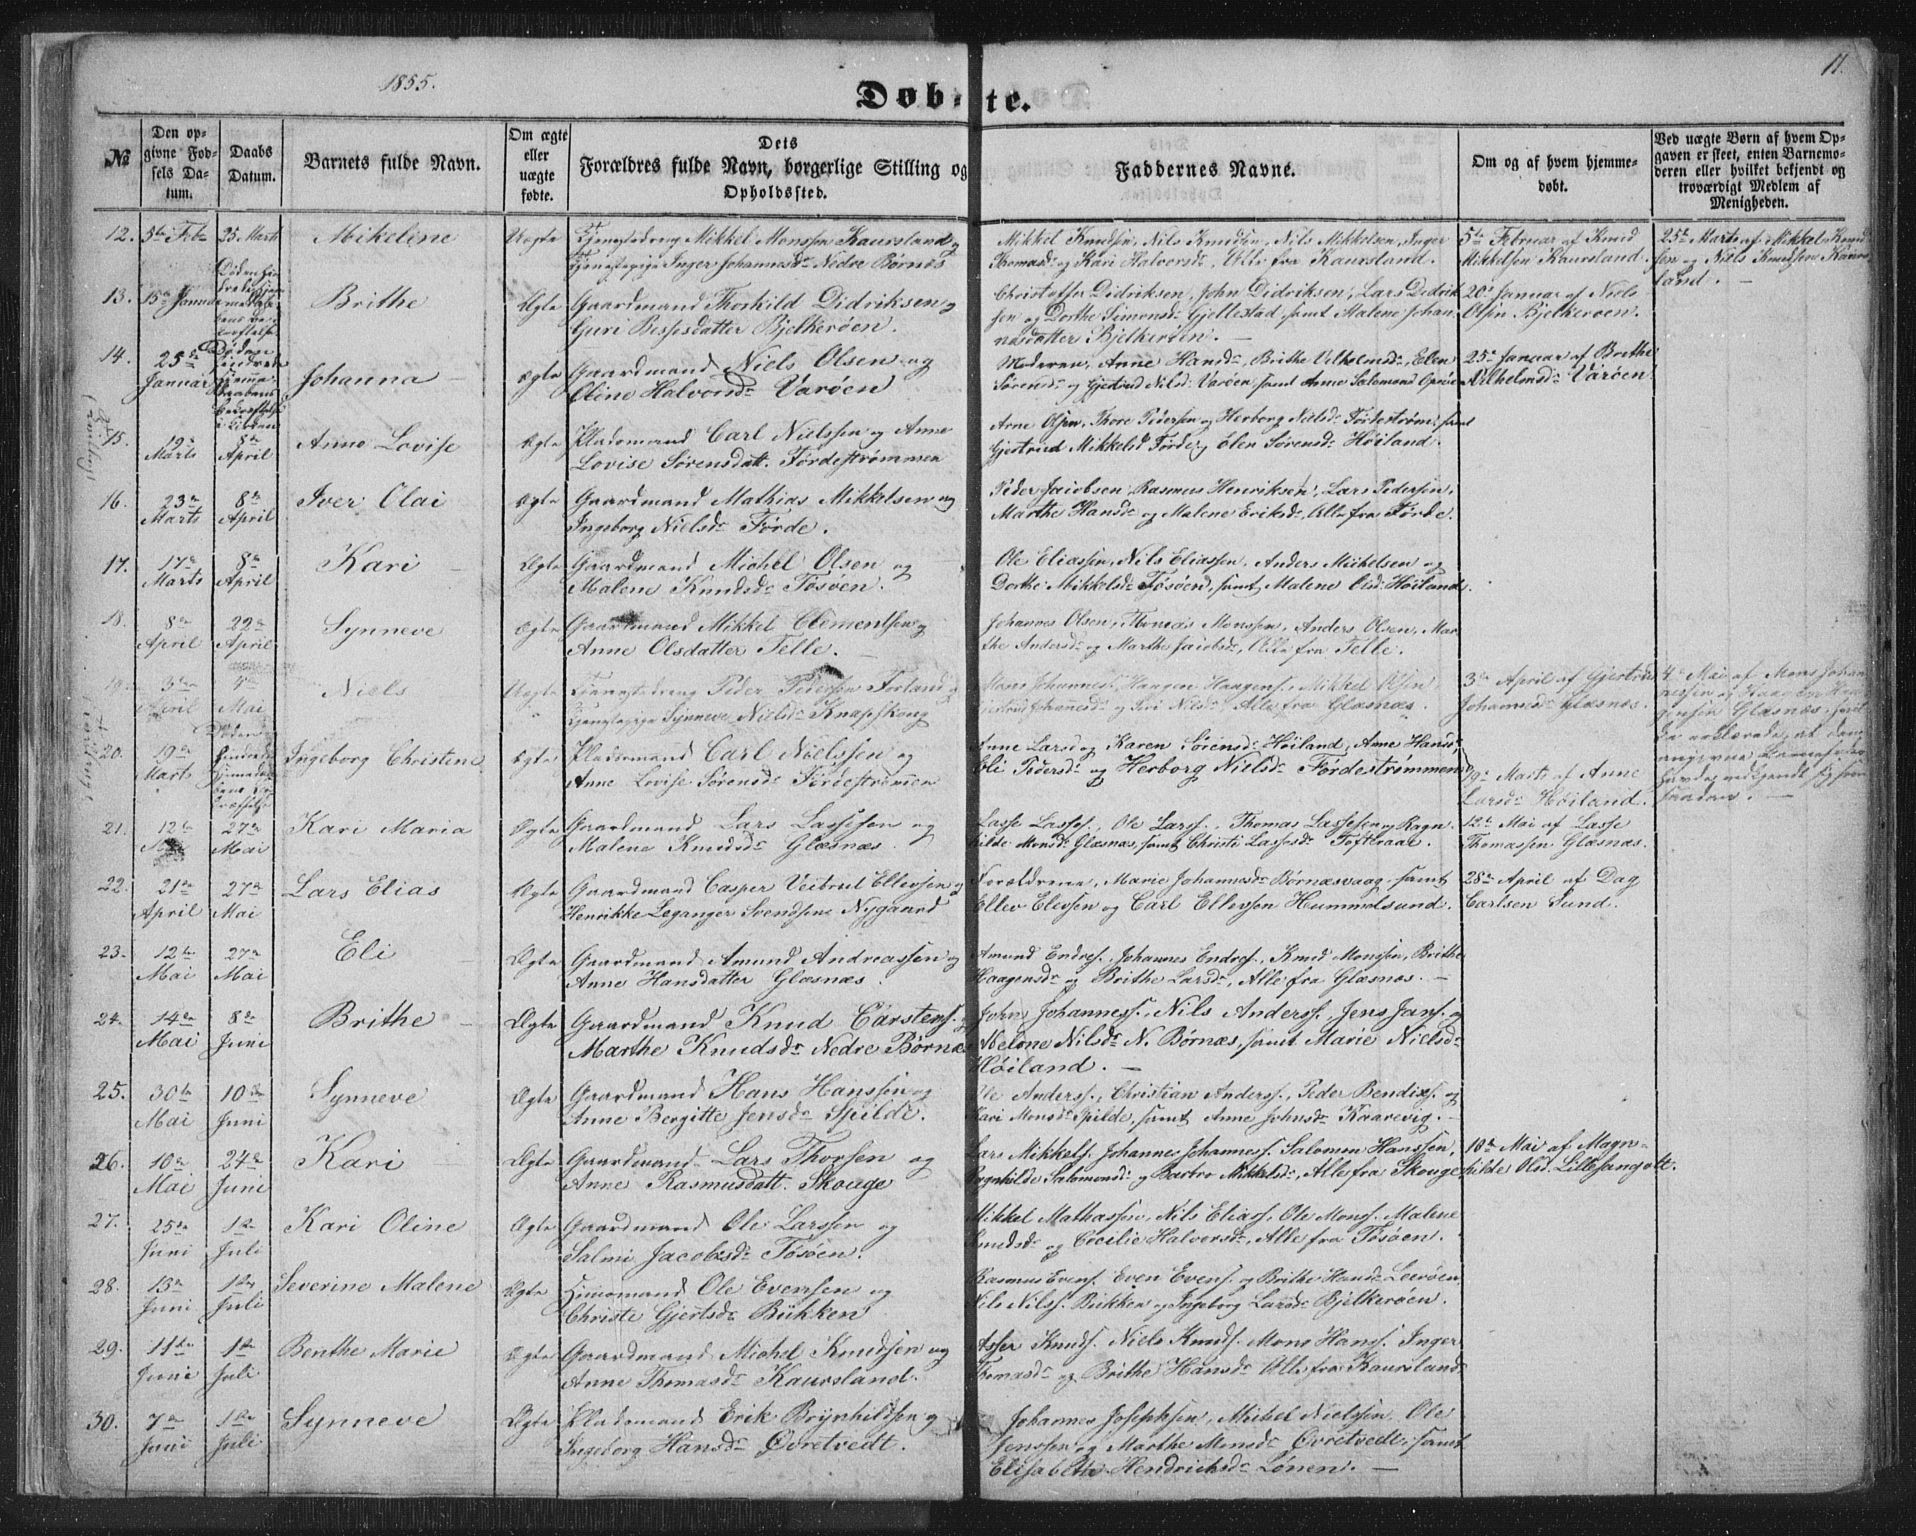 1855.
11.
Døbte.
No
Den opgivne Fødsels Datum.
Daabs Datum.
Barnets fulde Navn.
Om ægte eller uægte fødte.
Dets Forældres fulde Navn, borgerlige Stilling og Opholdssted.
Faddernes Navne.
Om og af hvem hjemmedøbt.
Ved uægte Børn af hvem Opgaven er skeet, enten Barnemoderen eller hvilket bekjendt og troværdigt Medlem af Menigheden.
12. 5te Feb 25. Marts Mikeline Uægte Tjenestedreng Mikkel Monssen Kaursland og
Tjenestepige Inger Johannesdr Nedre Børnes
Mikkel Knudsen, Nils Knudsen, Nils Mikkelsen, Inger
Thomasdr og Kari Halvorsdr, Alle fra Kaursland.
5te Februar af Knud
Mikkelsen Kaursland.
25de Marts af Mikkel Knud
sen og Niels Knudsen Kaurs
land.
13. 15de Januar Brithe Ægte Gaardmand Thorkild Didriksen og
Guri Bessesdatter Bjelkerøen.
Christoffer Didriksen, John Didriksen, Lars Didrik
sen og Dorthe Simonsdr Gjellestad samt Malene Johan
nesdatter Bjelkerøen.
20de Januar af Niels
Olsen Bjelkerøen.
14. 25de Januar Johanna Ægte Gaardmand Niels Olsen og
Oline Halvorsdr Varøen
Moderen, Anne Hansdr, Brithe Vilhelmsdr, Elen
Sørensdr og Gjertrud Nilsdr Varøen samt Anne Salomonsd
25de Januar af Brethe
Vilhelmsdr Varøen
15. 12te Marts 8de April Anne Lovise Ægte Pladsmand Carl Nielssen og Anne
Lovise Sørensdatt. Førdestrømmen
Arne Olsen, Thore Pedersen og Herborg Nielsdr Førdestrøm: samt
Gjertrud Mikkelsd Førde og Elen Sørensdr Høiland.
16. 23de Marts 8de April Iver Olai Ægte Gaardmand Mathias Mikkelsen og
Ingeborg Nielsdr Førde.
Peder Jacobsen, Rasmus Henriksen, Lars Pedersen,
Marthe Hansdr og Malene Eriksdr, Alle fra Førde.
17. 17de Marts 8de April Kari Ægte Gaardmand Michel Olsen og
Malene Knudsdr Tøsøen.
Ole Eliassen, Nils Eliassen, Anders Michelsen og
Dorthe Mikkelsdr Tøsøen, samt Malene Olsd. Høiland.
18. 8de April 22de April Synneve Ægte Gaardmand Mikkel Clementsen og
Anne Olsdatter Telle.
Johannes Olsen, Thomas Monssen, Anders Olsen, Mar
the Andersdr og Marthe Jacobsdr, Alle fra Telle.
19. 3die April 4de Mai Niels Uægte Tjenestedreng Peder Pedersen Forland og
Tjenestepige Synneve Nielsdr Knapskoug
Mons Johannes. Haagen Haagens. Mikkel Olsen
Gjertrud Johannesdr og Nilsdr, Alle fra Glæsnæs.
3die April af Gjertrud
Johannesdr Glæsnæs.
4de Mai af Mons Johan
nessen og Haagen Haa
gensen Glæsnæs,
20. 19de Marts Ingeborg Christine Ægte Pladsmand Carl Nielssen og
Anne Lovise Sørensdr Førdestrømmen
Anne Larsd og Karen Sørensdr Høiland, Anne Hansdr,
Eli Pedersdr og Herborg Nielsdr Førdestrømmen
19de Marts af Anne
Larsdr Høiland.
21. 12te Mai 27de Mai Kari Maria Ægte Gaardmand Lars Lassesen og
Malene Knudsdr Glæsnæs.
Lasse Lasses., Ole Larss., Thomas Lassesen og Ragn
hilde Monsdr Glæsnæs, samt Christi Lassesdr Tofteraae.
12te Mai af Lasse
Thomassen Glæsnæs.
22. 21de April 27de Mai Lars Elias Ægte Gaardmand Casper Veitrut Ellevsen og
Henrikke Leganger Svendsine Nygaard
Forældrene, Marie Johannesdr Børnæsvaag samt
Ellev Elevsen og Carl Ellevsen Hummelsund.
28de April af Dag
Carlsen Sund.
23. 12te Mai 27de Mai Eli Ægte Gaardmand Amund Andreassen og
Anne Hansdatter Glæsnæs
Amund Endres. Johannes Endres. Knud Monssen, Brithe
Haagensdr og Brithe Larsdr, Alle fra Glæsnæs.
24. 14de Mai 8de Juni Brithe Ægte Gaardmand Knud Carstens. og
Marthe Knudsdr Nedre Børnæs
John Johanness. Nils Anderss. Jens Jans. og
Nilsdr N. Børnæs, samt Marie Nielsdr
Høiland.
25. 30te Mai 10de Juni Synneve Ægte Gaardmand Hans Hanssen og
Anne Bergitte Jensdr Spilde.
Ole Anderss. Christian Anderss. Peder Bendixs. og
Kari Monsdr Spilde, samt Anne Johnsdr Kaarevig.
26. 10de Mai 24de Juni Kari Ægte Gaardmand Lars Thorsen og
Anne Rasmusdatt. Skouge
Lars Mikkels. Johannes Johanness. Salomon Hanssen,
Ragnhilde Salomonsdr og Barbro Mikkelsdr, Alle fra Skouge,
10de Mai af Magn
hilde Olsd. Lillesangolt.
27. 25de Juni 1ste Juli Kari Oline Ægte Gaardmand Ole Larssen og
Salmi Jacobsdr Tøsøen.
Mikkel Mathiassen, Nils Elias, Ole Mons. Malene
Knudsdr og Cecilie Halversdr, Alle fra Tøsøen.
28. 13de Juni 1ste Juli Severine Malene Ægte Huusmand Ole Evensen og
Christe Gjertsdr Bukken
Rasmus Evens. Even Evens. og Brithe Hansdr Leerøen
Nils Nils. Bukken og Ingeborg Larsdr Bjelkerøen.
29. 11te Juni 1ste Juli Benthe Marie Ægte Gaardmand Michel Knudsen og
Anne Thomasdr Kaursland.
Asser Knuds. Niels Knuds. Mons Hans. Inger
Thomasdr og Brithe Hansdr Alle fra Kaursland
30. 7de Juni 1ste Juli Synneve Ægte Pladsmand Erik Brynhildsen og
Ingeborg Hansdr Øvretvedt.
Johannes Josephsen, Michel Nielssen, Ole
Jenssen og Marthe Monsdr Øvretvedt, samt
Elisabeth Hendrichsdr Lønen.